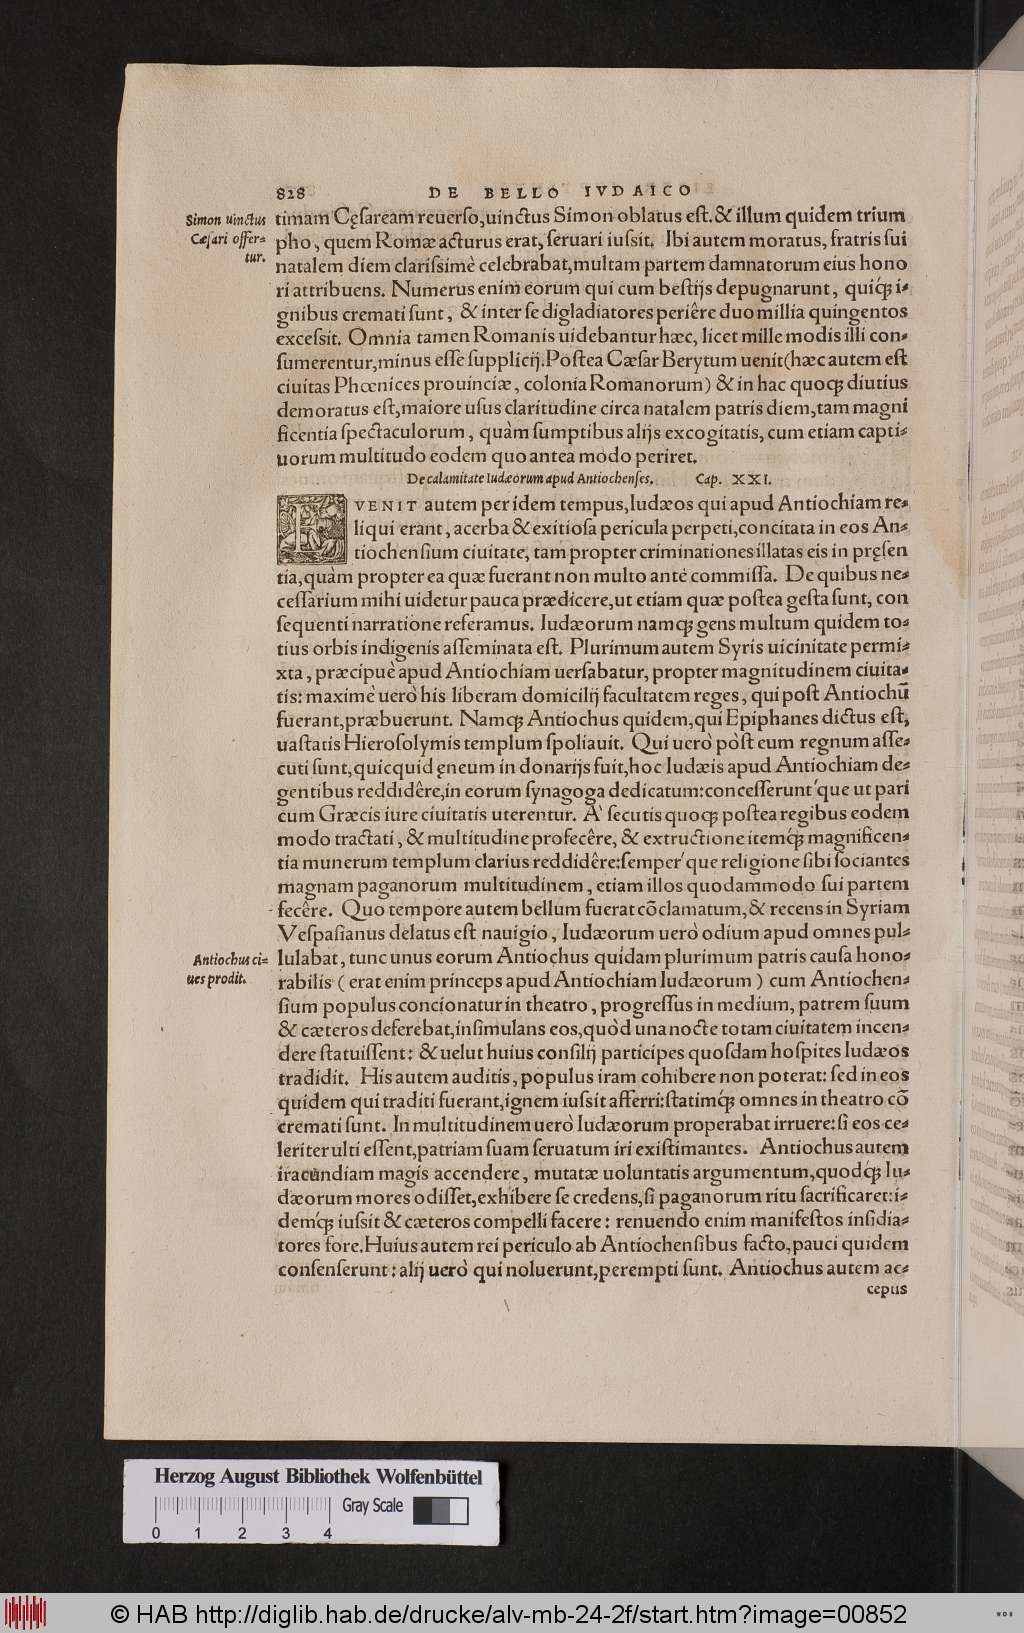 828 DE BELLO IVDAICO
Simon uinctus
Cæsari offer=
tur.
timam Cęſaream reuerſo,uinctus Simon oblatus eſt.& illum quidem trium
pho, quem Romæ acturus erat, ſeruari iuſsit. Ibi autem moratus, fratris ſui
natalem diem clariſsimè celebrabat,multam partem damnatorum eius hono
ri attribuens. Numerus enim eorum qui cum beſtijs depugnarunt, quiq́; i=
gnibus cremati ſunt, & inter ſe digladiatores periêre duo millia quingentos
exceſsit. Omnia tamen Romanis uidebantur hæc, licet mille modis illi con=
ſumerentur,minus eſſe ſupplicij.Poſtea Cæſar Berytum uenit(hæc autem eſt
ciuitas Phœnices prouinciæ, colonia Romanorum) & in hac quoq; diutius
demoratus eſt,maiore uſus claritudine circa natalem patris diem,tam magni
ficentia ſpectaculorum, quàm ſumptibus alijs excogitatis, cum etiam capti=
uorum multitudo eodem quo antea modo periret.
De calamitate Iudæorum apud Antiochenſes. Cap. XXI.
IVENIT autem per idem tempus,Iudæos qui apud Antiochiam re=
liqui erant, acerba & exitioſa pericula perpeti,concitata in eos An=
tiochenſium ciuitate, tam propter criminationes illatas eis in pręſen
tia,quàm propter ea quæ fuerant non multo antè commiſſa. De quibus ne=
ceſſarium mihi uidetur pauca prædicere,ut etiam quæ poſtea geſta ſunt, con
ſequenti narratione referamus. Iudæorum namq; gens multum quidem to=
tius orbis indigenis aſſeminata eſt. Plurimum autem Syris uicinitate permi=
xta, præcipuè apud Antiochiam uerſabatur, propter magnitudinem ciuita=
tis: maximè uerò his liberam domicilij facultatem reges, qui poſt Antiochũ
fuerant,præbuerunt. Namq; Antiochus quidem,qui Epiphanes dictus eſt,
uaſtatis Hieroſolymis templum ſpoliauit. Qui uerò pòſt eum regnum aſſe=
cuti ſunt,quicquid ęneum in donarijs fuit,hoc Iudæis apud Antiochiam de=
gentibus reddidêre,in eorum ſynagoga dedicatum:conceſſerunt´que ut pari
cum Græcis iure ciuitatis uterentur. A` ſecutis quoq; poſtea regibus eodem
modo tractati, & multitudine profecêre, & extructione itemq́; magnificen=
tia munerum templum clarius reddidêre:ſemper´que religione ſibi ſociantes
magnam paganorum multitudinem, etiam illos quodammodo ſui partem
fecêre. Quo tempore autem bellum fuerat cõclamatum,& recens in Syriam
Veſpaſianus delatus eſt nauigio, Iudæorum uerò odium apud omnes pul=
Antiochus ci=
ues prodit.
lulabat, tunc unus eorum Antiochus quidam plurimum patris cauſa hono=
rabilis (erat enim princeps apud Antiochiam Iudæorum) cum Antiochen=
ſium populus concionatur in theatro, progreſſus in medium, patrem ſuum
& cæteros deferebat,inſimulans eos,quòd una nocte totam ciuitatem incen=
dere ſtatuiſſent: & uelut huius conſilij participes quoſdam hoſpites Iudæos
tradidit. His autem auditis, populus iram cohibere non poterat: ſed in eos
quidem qui traditi fuerant,ignem iuſsit afferri:ſtatimq́; omnes in theatro cõ
cremati ſunt. In multitudinem uerò Iudæorum properabat irruere: ſi eos ce=
leriter ulti eſſent,patriam ſuam ſeruatum iri exiſtimantes. Antiochus autem
iracundiam magis accendere, mutatæ uoluntatis argumentum,quodq́; Iu=
dæorum mores odiſſet,exhibere ſe credens,ſi paganorum ritu ſacrificaret:i=
demq́; iuſsit & cæteros compelli facere: renuendo enim manifeſtos inſidia=
tores fore.Huius autem rei periculo ab Antiochenſibus facto,pauci quidem
conſenſerunt: alij uerò qui noluerunt,perempti ſunt. Antiochus autem ac=
cepus
Herzog August Bibliothek Wolfenbüttel
Gray Scale
0 1 2 3 4
© HAB http://diglib.hab.de/drucke/alv-mb-24-2f/start.htm?image=00852